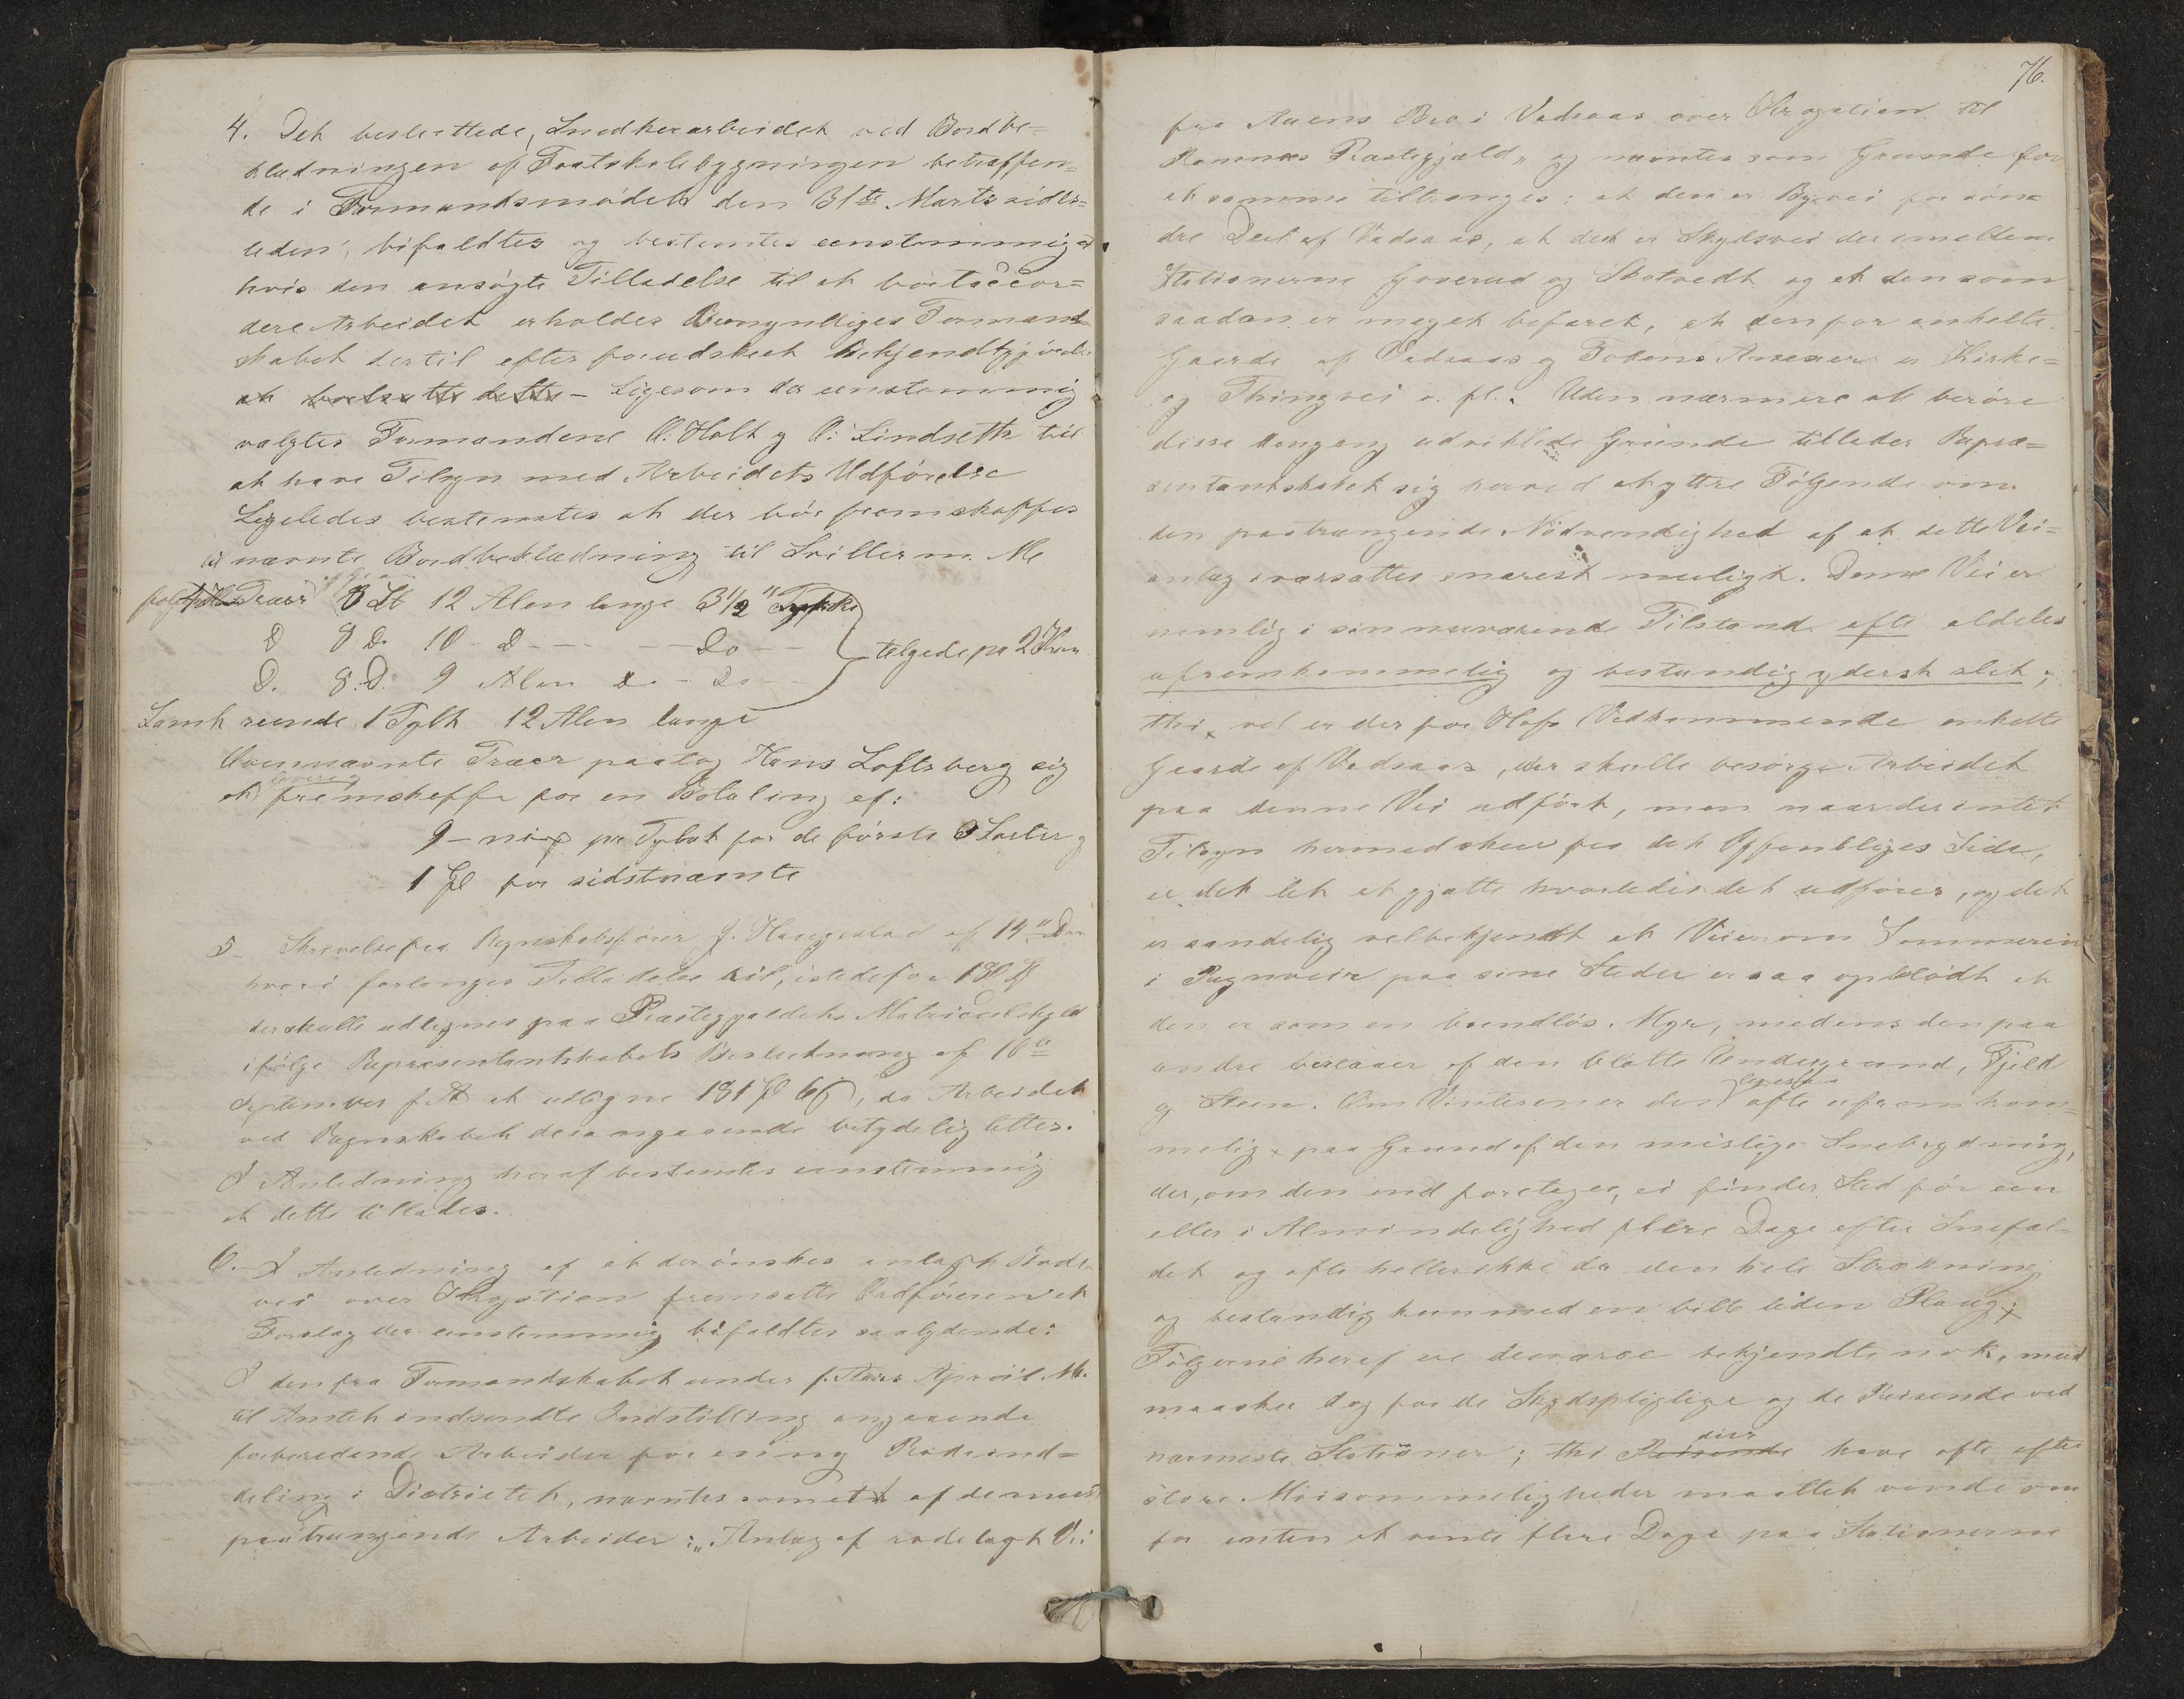 4. Det besluttede, Snedkerarbeidet ved Bordbe=
klædningen af Fastskolebygningen betræffen=
de i Formandsmödet den 31te Marts sidst=
leden, bifaldtes og bestemtes eenstemmig at
hvis den ansögte Tilladelse til at bortaccor=
dere Arbeidet erholdes bemyndiges Formand=
skabet dertil efter foeudskeet Bekjendtgjörelse
at bortsætte dette - Ligesom der eenstemmig
valgtes Formændene O. Holt og O: Lindseth til
at have Tilsyn med Arbeidets Udförelse
Ligeledes bestemtes at der bör fremskaffes
til nævnte Bordbeklædning til Sviller m. M:
fölgende Træer 8 St 12 Alen lange 3 1/2 " Tykke
D 8 D. 10 - D - - - - Do - - telgede på 2 Kan
D. 8. D. 9 Alen Do - Do - -
Samt runde 1 Tylt 12 Alen lange
Ovennævnte Træer paatog Hans Loftsberg sig
at levere og fremskaffe for en Betaling af:
9 - ni pr Tylvt for de förste 3 Sorter og
1 Spd for sidstnævnte
5 - Skrivelse fra Regnskabsförer J. Haugestad af 14de Ds
hvori forlanges Tilladelse til, istedetfor 180 Spd
der skulle udlignes paa Præstegjældets Matriculskyld
ifölge Repræsentantskabets Beslutning af 16de
September f. A at udligne 181 Spd 66, da Arbeidet
ved Regnskabet desangaaende betydelig lettes.
I Anledning heraf bestemtes eenstemmig
at dette tillades.
6. - I Anledning af at der önskes anlagt Rode
vei over Krystien fremsatte Ordföreren et
Forslag der eenstemmig bifaldtes saalydende:
I den fra Formandskabet under f. Aars April. M.
til Amtet indsendte Indstilling angaaende
forberedende Arbeider for en ny Rodeind=
deling i Districtet, nævntes som et af de meest
paatrængende Arbeider: "Anlæg af rodelagt Vei
76.
fra Aaens Bro i Vadsaas over Krystien til
Ramnæs Præstegjæld" og nævntes som Grunde for
at samme tiltrænges: at den er Byvei for sön=
dre Deel af Vadsaas, at det er Skydsvei der imellem
Stationerne Goverud og Skotvedt og at den som
saadan er meget befaret, at den for enkelte
Gaarde af Vadsaas og Fokens Annexer er Kirke=
og Thingvei o. fl. Uden nærmere at beröre
disse dengang udviklede Grunde tillader Repræ=
sentantskabet sig herved at yttre Fölgende om
den paatrængende Nödvendighed af at dette Vei=
anlæg iværsættes snarest mueligt. Denne Vei er
nemlig i sin nuværende Tilstand ofte aldeles
ufremkommelig og bestandig yderst slet,
thi, vel er der for Hofs Vedkommende enkelte
Gaarde af Vadsaas, der skulle besörge Arbeidet
paa denne Vei udfört, men naar der intet
Tilsyn hermed skeer fra det Offentliges Side,
er det let at gjætte hvorledes det udföres, og det
er sandelig velbekjendt at Veien om Sommeren
i Regnveir paa sine Steder er saa opblödt at
den er som en bundlös Myr, medens den paa
andre bestaaer af den blotte Undergrund, Fjeld
og Steen. Om Vinteren er den ofte ufremkom=
melig, paa Grund af den mislige Snebrydning,
der, om den end foretages, ei finder Sted för een
eller i Almindelighed flere Dage efter Snefal=
det og ofte heller ikke da den hele Strækning
og bestandig kun med en lille liden Plaug.
Fölgerne heraf ere desværre bekjendte nok, meest
maaskee dog for de Skydspligtige og de Reisende ved
nærmeste Stationer; thi Reisende disse have ofte efter
store Möisommeligheder maattet vende om
for enten at vente flere Dage paa Stationerne